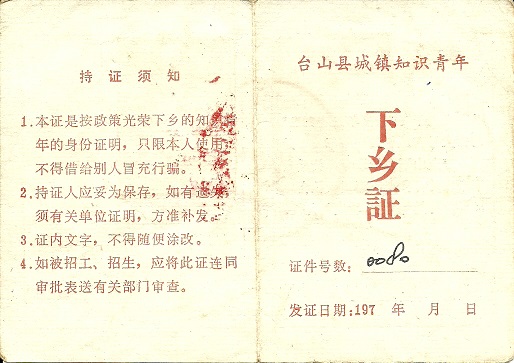 持证须知
1.本证是按政策光荣下乡的知青
年的身份证明，只限本人使用，
不得借给别人冒充行骗。
2.持证人应妥为保存，如有遗失，
须有关单位证明，方准补发。
3.证内文字，不得随便涂改。
4.如被招工、招生，应将此证连同
审批表送有关部门审查。
台山县城镇知识青年
下乡証
证件号数：0080
发证日期：197 年 月 日